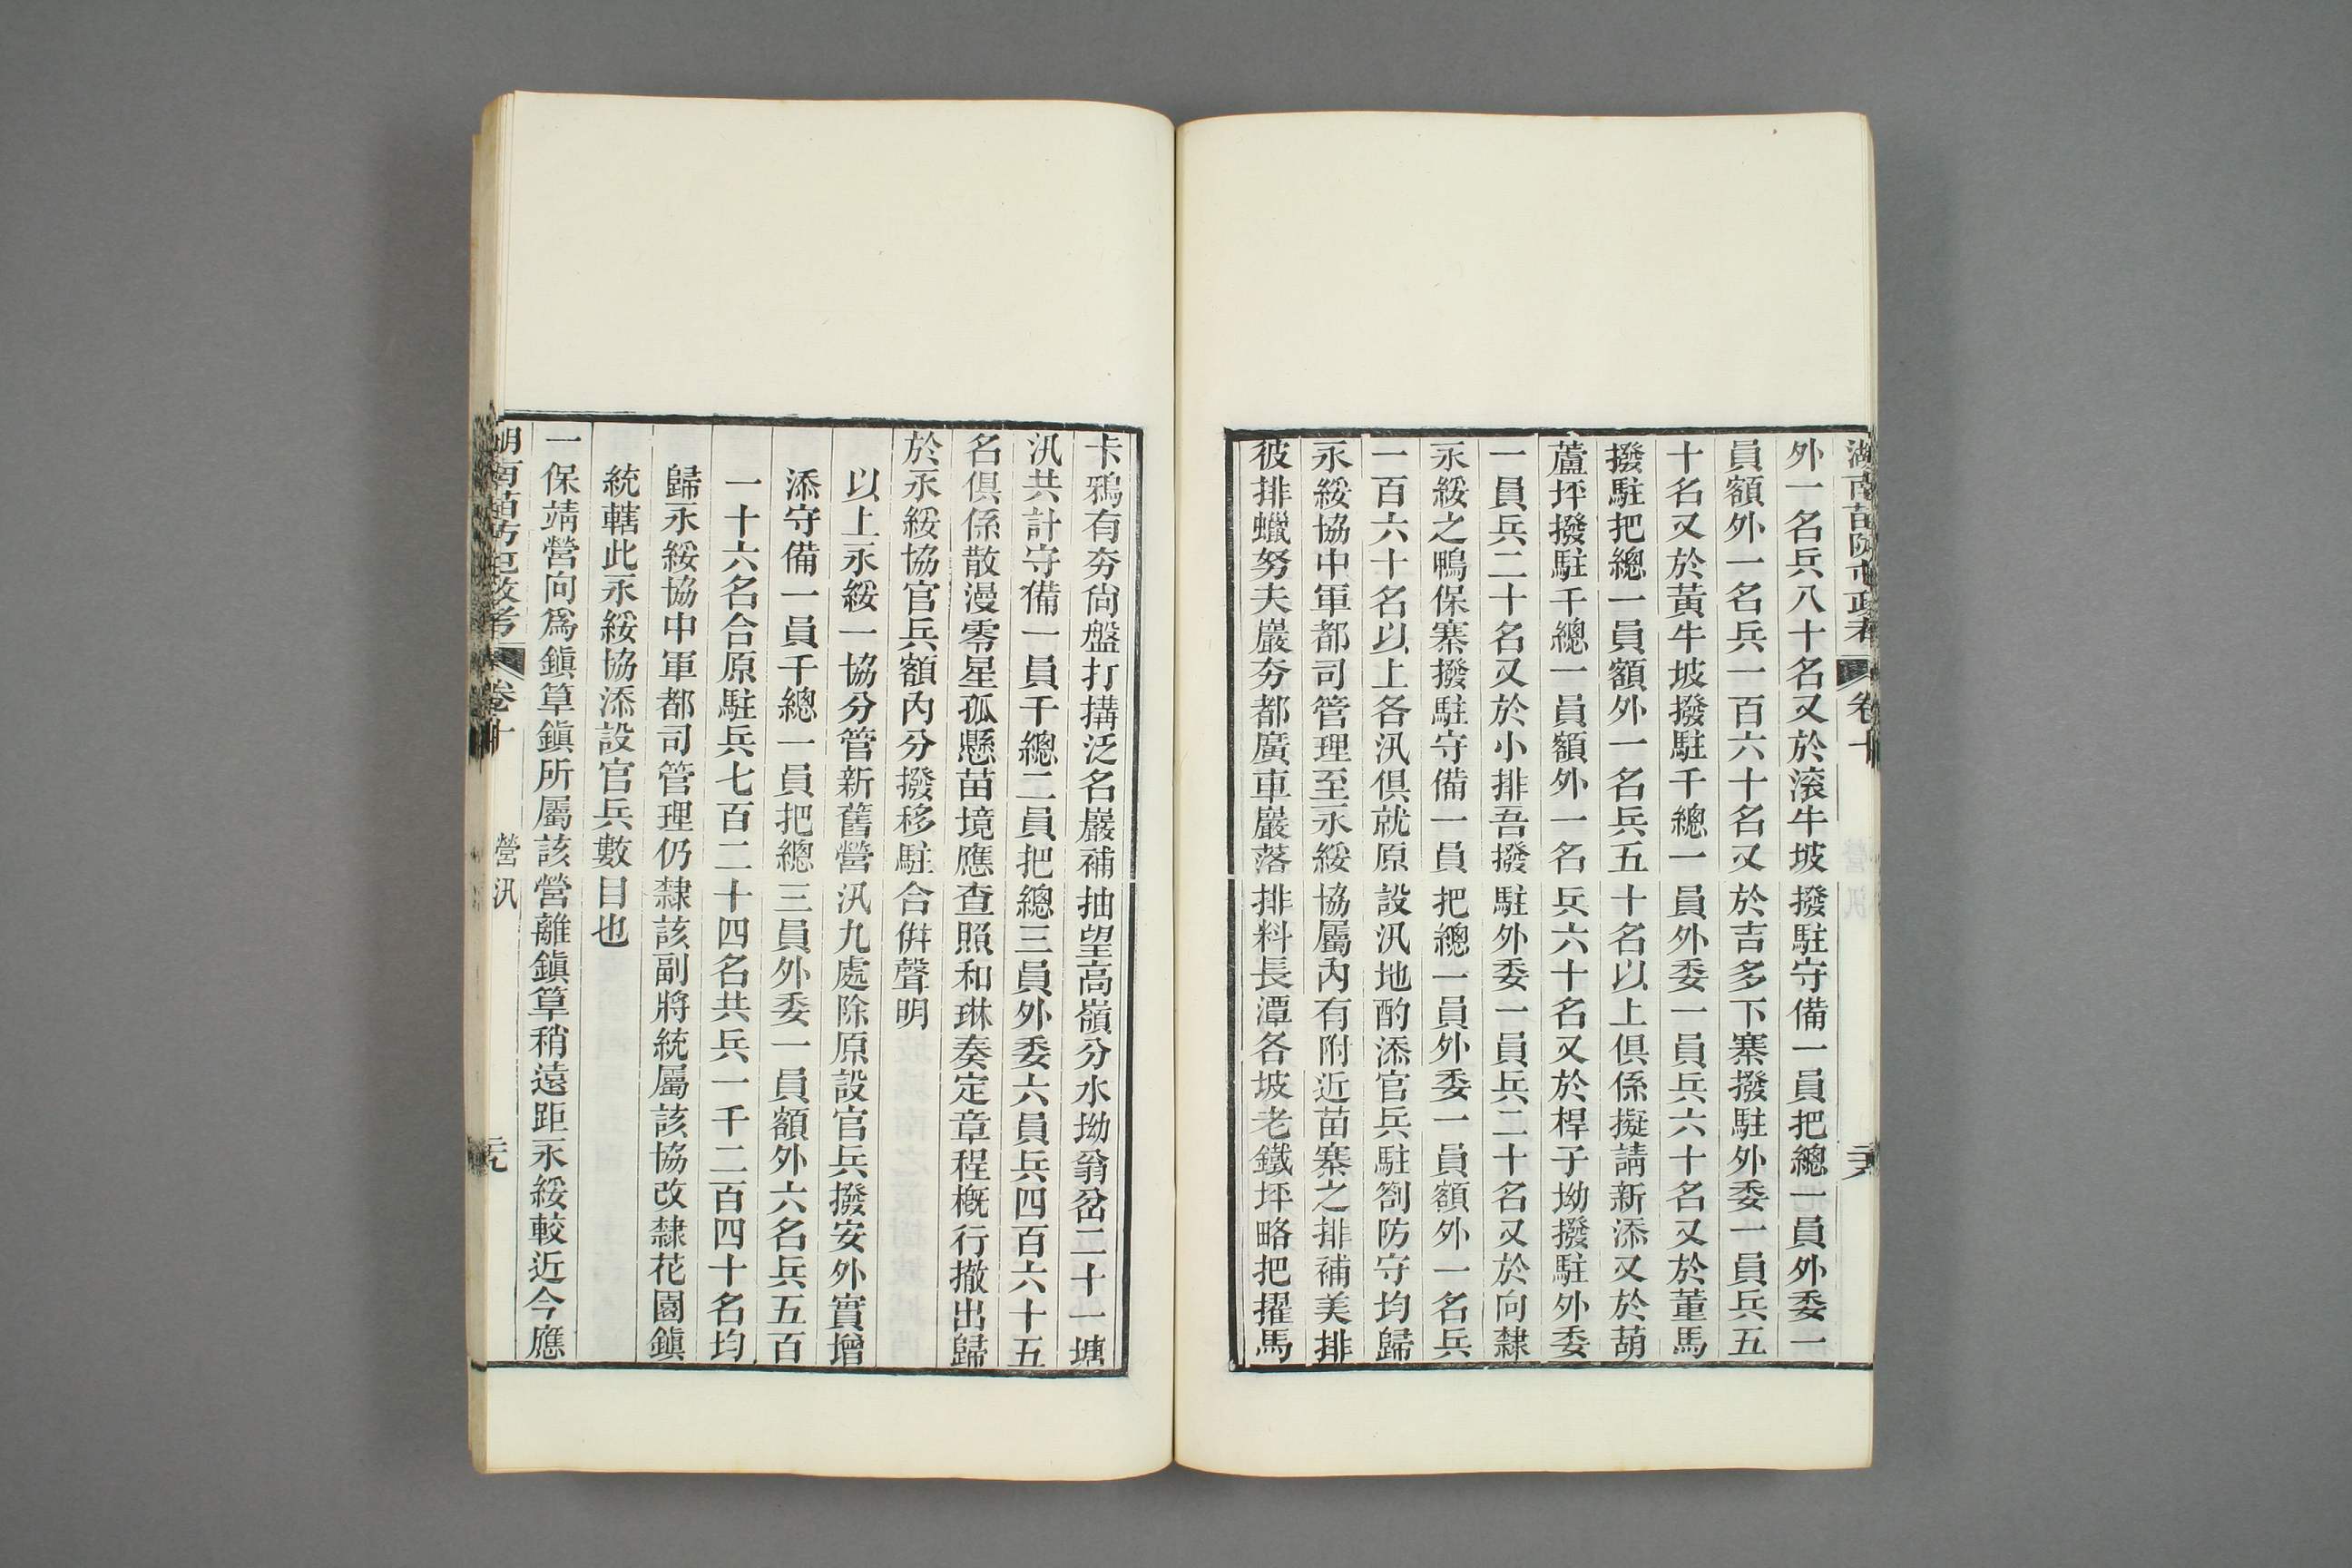 湖南苗防屯政考 卷十 二六
外一名兵八十名又於滚牛坡撥駐守備一員把總一員外委一
員額外一名兵一百六十名又於吉多下寨撥駐外委一員兵五
十名又於黃牛坡撥駐千總一員外委一員兵六十名又於董馬
撥駐把總一員額外一名兵五十名以上俱係擬請新添又於葫
蘆坪撥駐千總一員額外一名兵六十名又於桿子坳撥駐外委
一員兵二十名又於小排吾撥駐外委一員兵二十名又於向隸
永綏之鴨保寨撥駐守備一員把總一員外委一員額外一名兵
一百六十名以上各汛俱就原設汛地酌添官兵駐劄防守均歸
永綏協中軍都司管理至永綏協屬內有附近苗寨之排補美排
彼排蠟努夫巖夯都廣車巖落排料長潭各坡老鐵坪略把擢馬
卡鴉有夯尙盤打搆泛名巖補抽望高嶺分水坳翁岔二十一塘
汛共計守備一員千總二員把總三員外委六員兵四百六十五
名俱係散漫零星孤懸苗境應查照和琳奏定章程槪行撤出歸
於永綏協官兵額內分撥移駐合倂聲明
以上永綏一協分管新舊營汛九處除原設官兵撥安外實增
添守備一員千總一員把總三員外委一員額外六名兵五百
一十六名合原駐兵七百二十四名共兵一千二百四十名均
歸永綏協中軍都司管理仍隸該副將統屬該協改隸花園鎭
統轄此永綏協添設官兵數目也
一保靖營向爲鎭筸鎭所屬該營離鎭筸稍遠距永綏較近今應
湖南苗防屯政考 卷十 營汛 二九